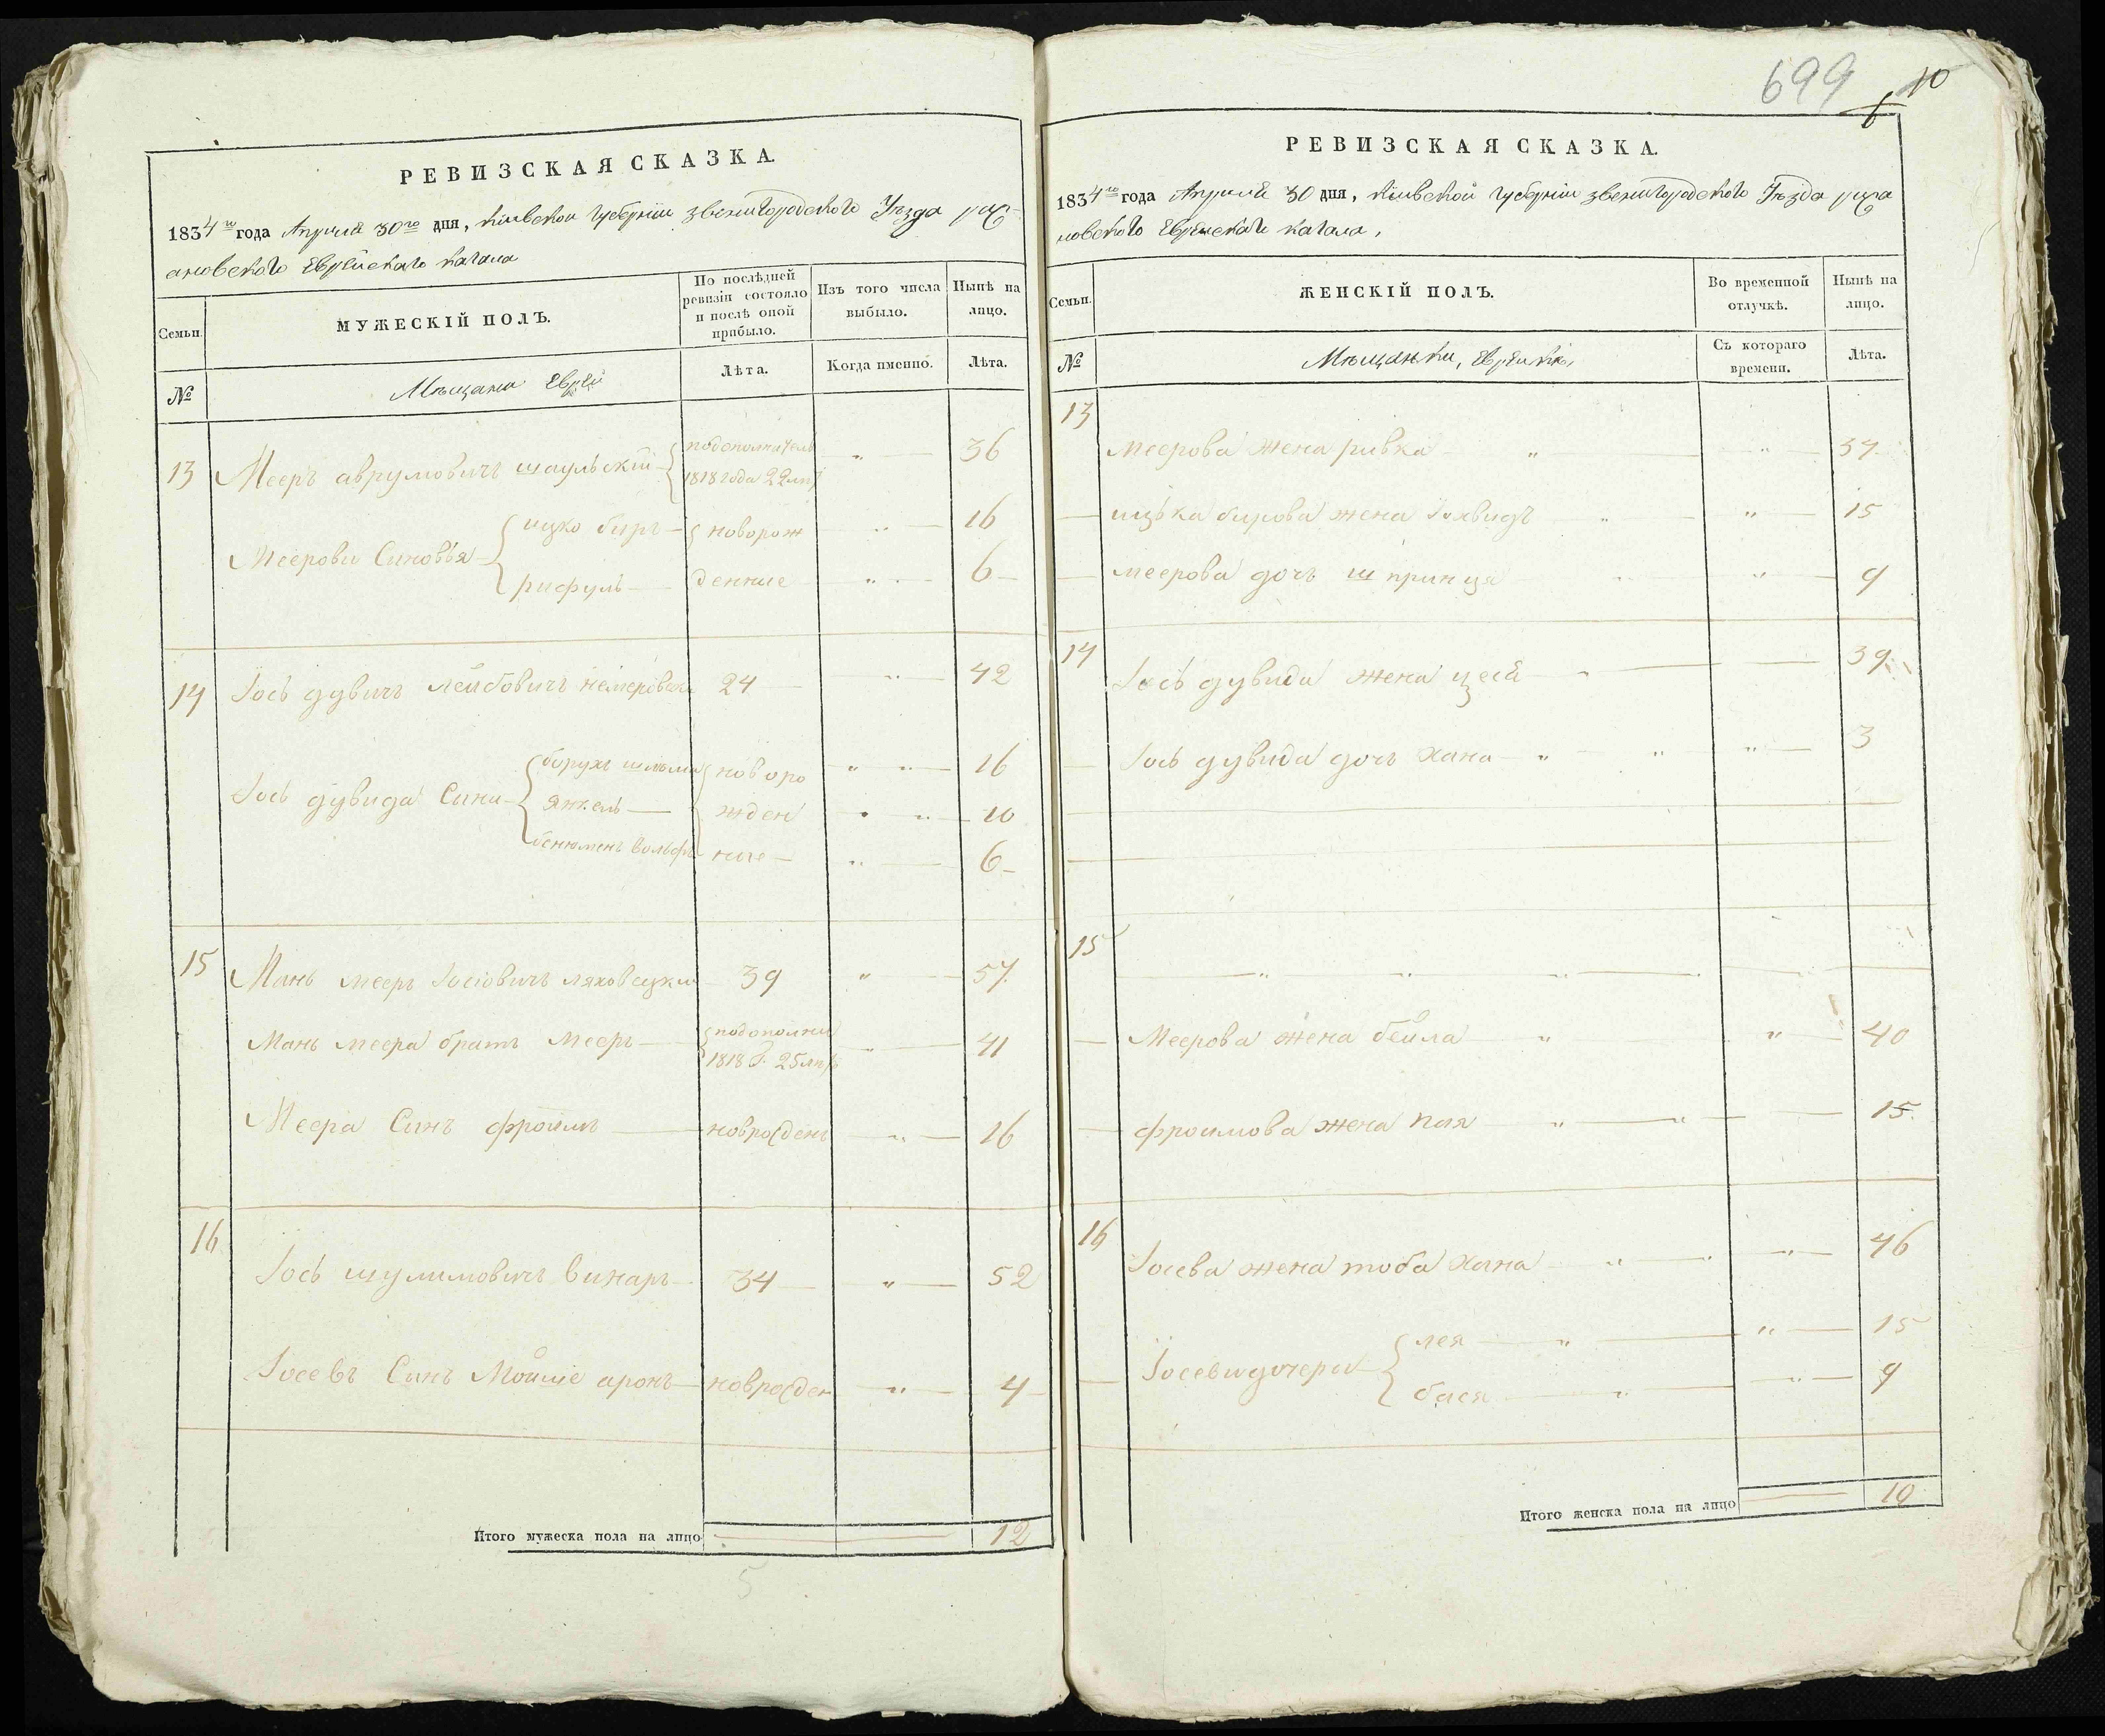 699 10
6
РЕВИЗСКАЯ СКАЗКА.
1834го года Апреля 30го дня, Кіевской губерніи звенигородского Уѣзда риж
ановского Еврейскаго кагала
Семьи.
МУЖЕСКІЙ ПОЛЪ.
По послѣдней ревизіи состояло и послѣ оной прибыло.
Изъ того числа выбыло.
Нынѣ на лицо.
№
Мѣщане Евреі
Лѣта.
Когда именно.
Лѣта.
13 Мееръ аврумовичъ шаульскій { подополнитель 1818 года 22 лѣт „ 36
Меерови Синовья { ицко беръ { новорож „ 16
рафуль денние „ 6
14 Іось дувидъ лейбовичъ 24 „ 42
Іось дувида Сини { борухъ шльма { новоро „ „ 16
янкель жден „ „ 10
бенюменъ вольфъ ные „ 6
15 Мань мееръ Іосіовичъ ляховецкий 39 „ 57
Мань меера братъ мееръ { подополни 1818 г. 25 лѣт „ 41
Меера Синъ фроимъ новрожденъ „ 16
16 Іось шулимовичъ винаръ 34 „ 52
Іосевъ Синъ Мойше аронъ новрожден „ 4
Итого мужеска пола на лицо 12
5
РЕВИЗСКАЯ СКАЗКА.
1834го года Апреля 30 дня, Кіевской губерніи звенигородского Уѣзда рижа
новского Еврейскаго кагала,
Семьи.
ЖЕНСКІЙ ПОЛЪ.
Во временной отлучкѣ.
Нынѣ на лицо.
№
Мѣщанки, Еврейки,
Съ котораго времени.
Лѣта.
13
Меерова жена ривка „ „ 37
ицька бирова жена Іохвидъ „ „ 15
меерова дочъ шпринця „ „ 9
14 Іось дувида жена цеся „ 39
Іось дувида дочъ хана „ „ „ 3
15 „ „ „ „
Меерова жена бейла „ „ 40
фроимова жена пая „ „ 15
16 Іосева жена тоба хана „ „ 46
Іосеви дочери { лея „ „ 15
бася „ „ 9
Итого женска пола на лицо 10